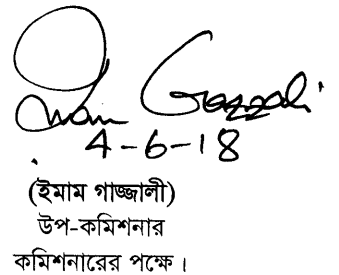 Imam Gazzali
4-6-18
(ইমাম গাজ্জালী)
উপ-কমিশনার
কমিশনারের পক্ষে।